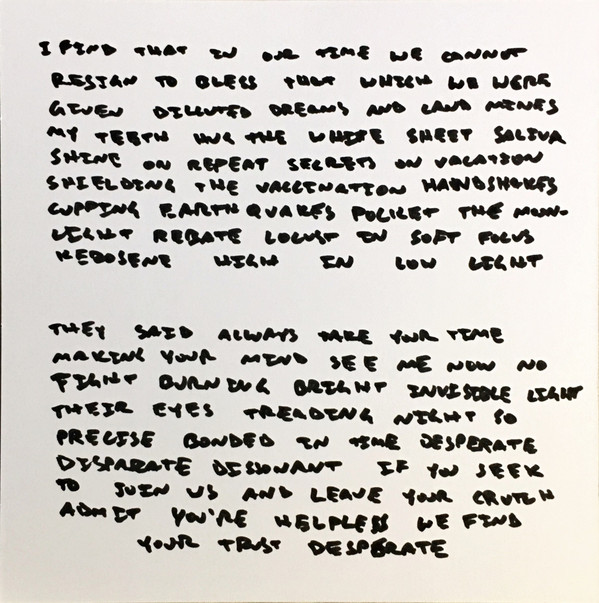 I FIND THAT IN OUR TIME WE CANNOT
RESIGN TO BLESS THAT WHICH WE WERE
GIVEN DILUTED DREAMS AND LAND MINES
MY TEETH HUG THE WHITE SHEET SALIVA
SHINE ON REPEAT SECRETS ON VACATION
SHIELDING THE VACCINATION HANDSHAKES
CUPPING EARTHQUAKES POLICET THE MOON-
LIGHT REBATE LOCUST IN SOFT FOCUS
KEROSENE HIGH IN LOW LIGHT
THEY SAID ALWAYS TAKE YOUR TIME
MAKING YOUR MIND SEE ME NOW NO
FIGHT BURNING BRIGHT INVISIBLE LIGHT
THEIR EYES TREADING NIGHT SO
PRECISE BONDED IN TIME DESPERATE
DISPARATE DISSONANT IF YOU SEEK
TO JOIN US AND LEAVE YOUR CRUTCH
ADMIT YOU'RE HELPLESS WE FIND
YOUR TRUST DESPERATE